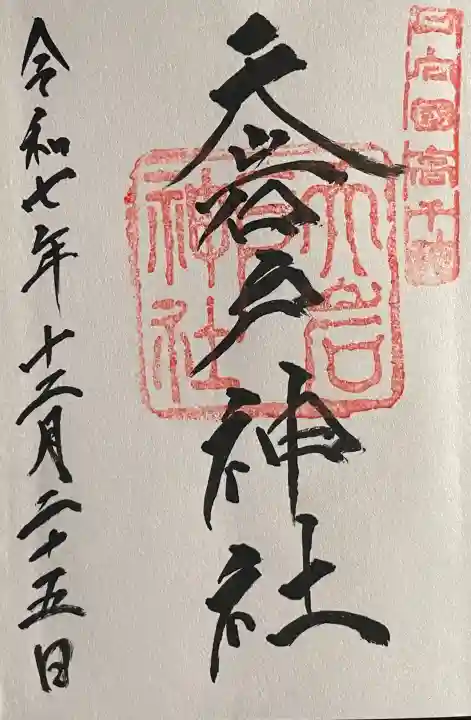 日向國高千穂
天岩戸神社
天岩戸神社
令和七年十二月二十五日